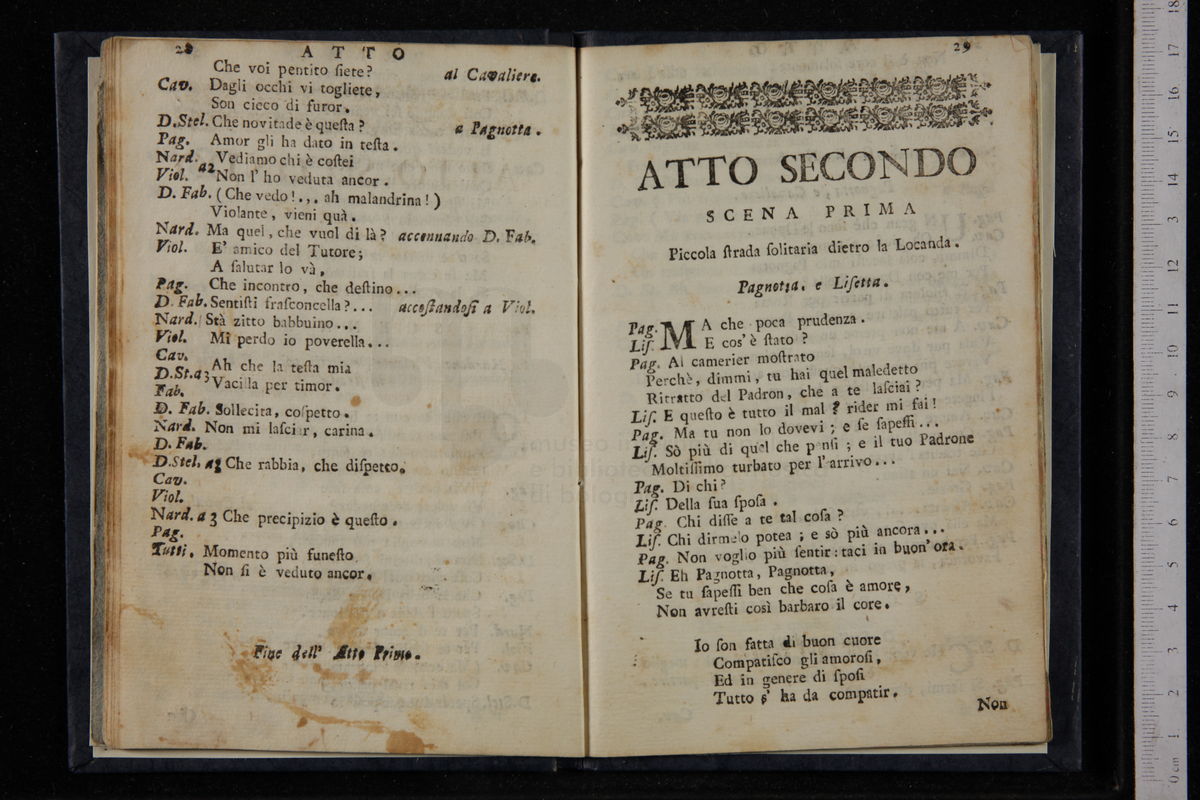 28 ATTO
Che voi pentito ſiete? al Cavaliere.
Cav. Dagli occhi vi togliete,
Son cieco di furor.
D.Stel. Che novitade è queſta? a Pagnotta.
Pag. Amor gli ha dato in teſta.
Nard. Vediamo chi è coſtei
a2
Viol. Non l'ho veduta ancor.
D. Fab. (Che vedo!.,. ah malandrina!)
Violante, vieni quà.
Nard. Ma quel, che vuol di là? accennando D. Fab.
Viol. E' amico del Tutore;
A ſalutar lo và,
Pag. Che incontro, che deſtino...
D. Fab. Sentiſti fraſconcella?... accoſtandoſi a Viol.
Nard. Stà zitto babbuino...
Viol. Mi perdo io poverella...
Cav.
Ah che la teſta mia
D.St.a3
Vacilla per timor.
Fab.
D. Fab. Sollecita, coſpetto.
Nard. Non mi laſciar, carina.
D. Fab.
D.Stel. a3 Che rabbia, che diſpetto.
Cav.
Viol.
Nard. a 3 Che precipizio è queſto.
Pag.
Tutti. Momento più funeſto
Non ſi è veduto ancor.
Fine dell' Atto Primo.
29
ATTO SECONDO
SCENA PRIMA
Piccola ſtrada ſolitaria dietro la Locanda.
Pagnotta, e Liſetta.
Pag. MA che poca prudenza.
Liſ. E cos'è ſtato?
Pag. Al camerier moſtrato
Perchè, dimmi, tu hai quel maledetto
Ritratto del Padron, che a te laſciai?
Liſ. E queſto è tutto il mal? rider mi fai!
Pag. Ma tu non lo dovevi; e ſe ſapeſſi...
Liſ. Sò più di quel che penſi; e il tuo Padrone
Moltiſſimo turbato per l'arrivo...
Pag. Di chi?
Liſ. Della ſua ſpoſa.
Pag. Chi diſſe a te tal coſa?
Liſ. Chi dirmelo potea; e sò più ancora...
Pag. Non voglio più ſentir: taci in buon'ora.
Liſ. Eh Pagnotta, Pagnotta,
Se tu ſapeſſi ben che coſa è amore,
Non avreſti così barbaro il core.
Io ſon fatta di buon cuore
Compatiſco gli amoroſi,
Ed in genere di ſpoſi
Tutto s' ha da compatir.
Non